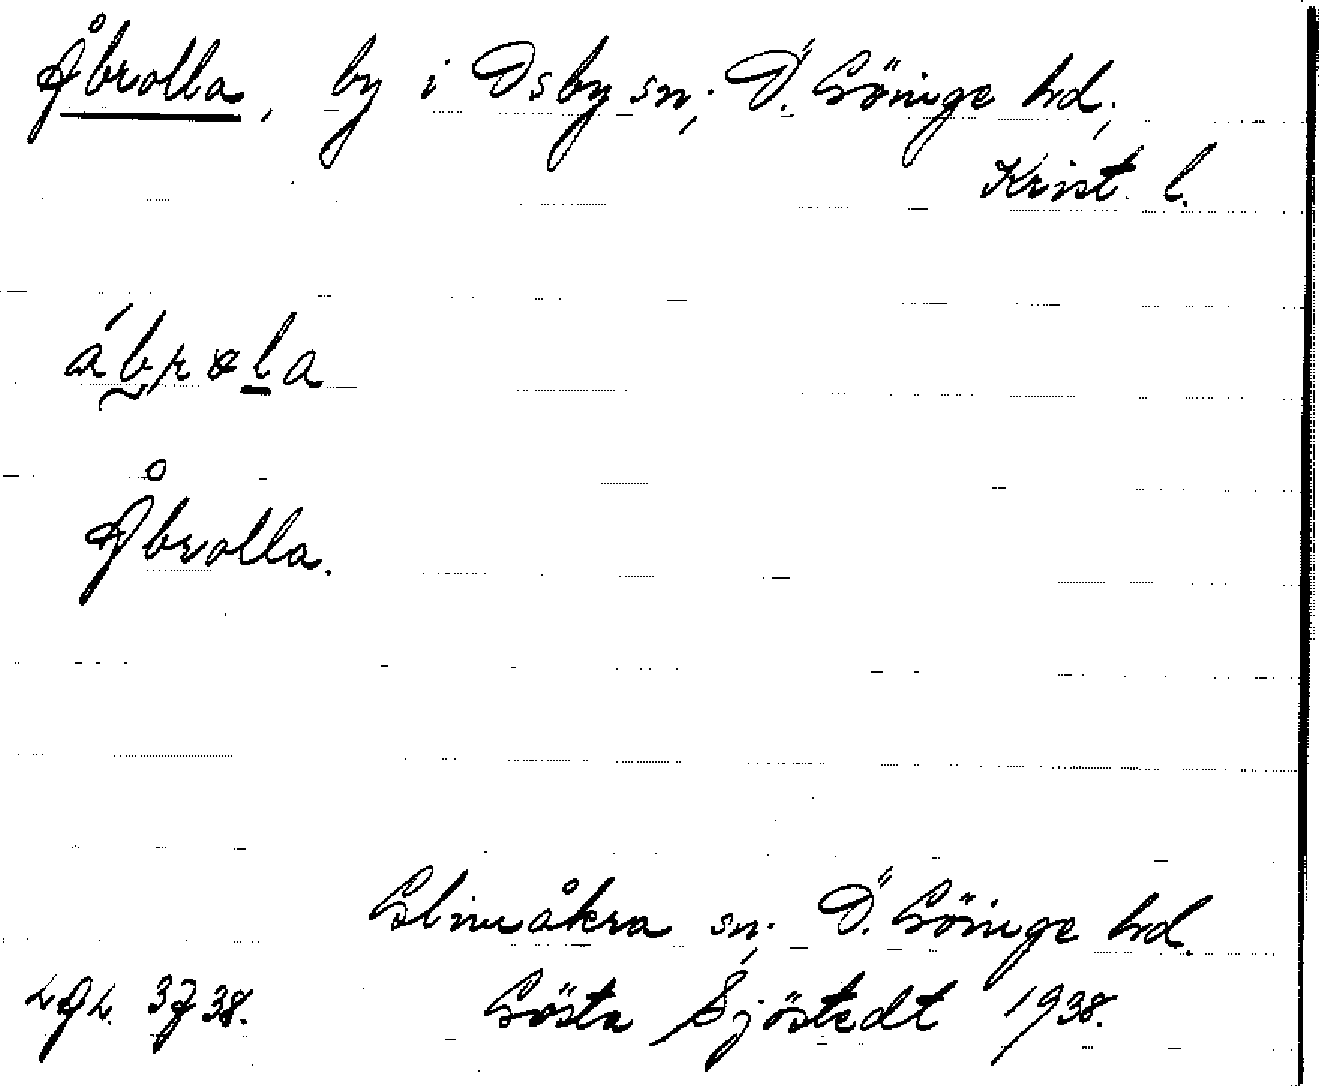 Åbrolla, by i Osby sn; Ö. Göinge hd;
Krist. l.
Åbrolla.
Glimåkra sn; Ö. Göinge hd.
Gösta Sjöstedt 1938.